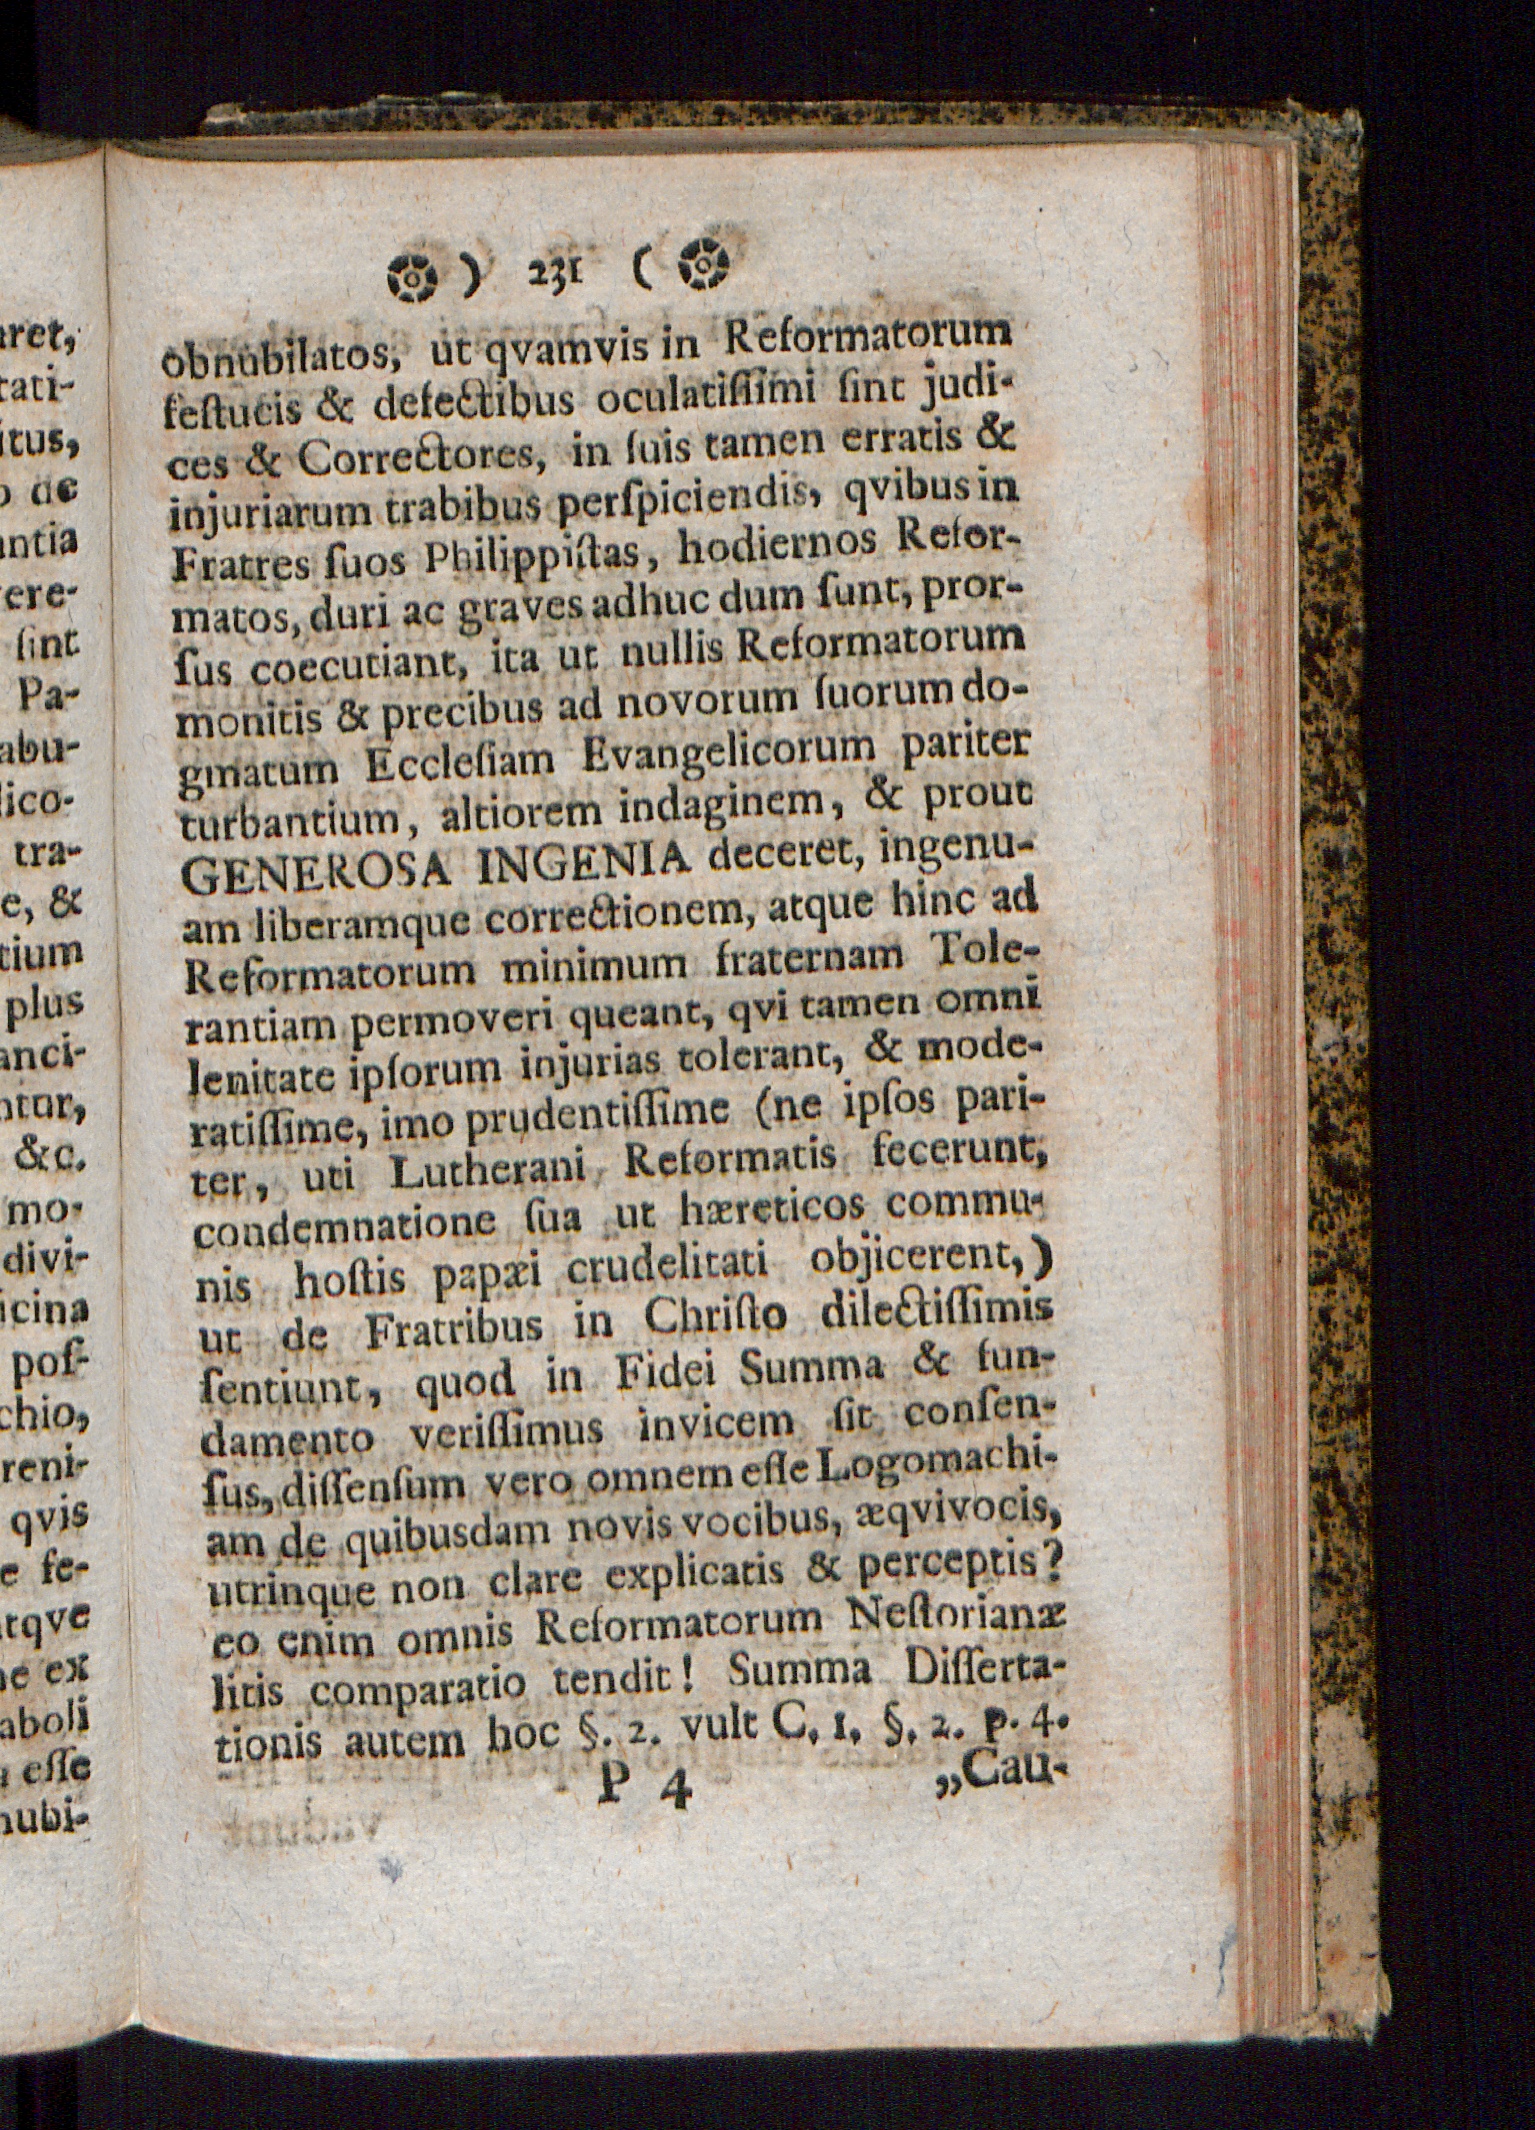 ) 231 (
obnubilatos, ut qvamvis in Reformatorum
feſtucis & defectibus oculatiſſimi ſint judi-
ces & Correctores, in ſuis tamen erratis &
injuriarum trabibus perſpiciendis, qvibus in
Fratres ſuos Philippiſtas, hodiernos Refor-
matos, duri ac graves adhuc dum ſunt, pror-
ſus coecutiant, ita ut nullis Reformatorum
monitis & precibus ad novorum ſuorum do-
gmatum Eccleſiam Evangelicorum pariter
turbantium, altiorem indaginem, & prout
GENEROSA INGENIA deceret, ingenu-
am liberamque correctionem, atque hinc ad
Reformatorum minimum fraternam Tole-
rantiam permoveri queant, qvi tamen omni
lenitate ipſorum injurias tolerant, & mode-
ratiſſime, imo prudentiſſime (ne ipſos pari-
ter, uti Lutherani Reformatis fecerunt,
condemnatione ſua ut hæreticos commu-
nis hoſtis papæi crudelitati objicerent,)
ut de Fratribus in Chriſto dilectiſſimis
ſentiunt, quod in Fidei Summa & fun-
damento veriſſimus invicem ſit conſen-
ſus, diſſenſum vero omnem eſſe Logomachi-
am de quibusdam novis vocibus, æqvivocis,
utrinque non clare explicatis & perceptis?
eo enim omnis Reformatorum Neſtorianæ
litis comparatio tendit! Summa Diſſerta-
tionis autem hoc §. 2. vult C. 1. §. 2. p. 4.
P 4 „Cau-